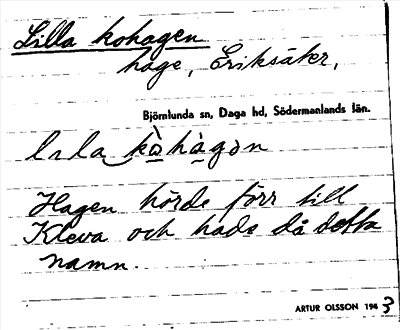 Lilla kohagen
hage, Eriksäter,
Björnlunda sn, Daga hd, Södermanlands län.
lıla kòhàgɔn
Hagen hörde förr till
Kleva och hade då detta
namn.
ARTUR OLSSON 1943